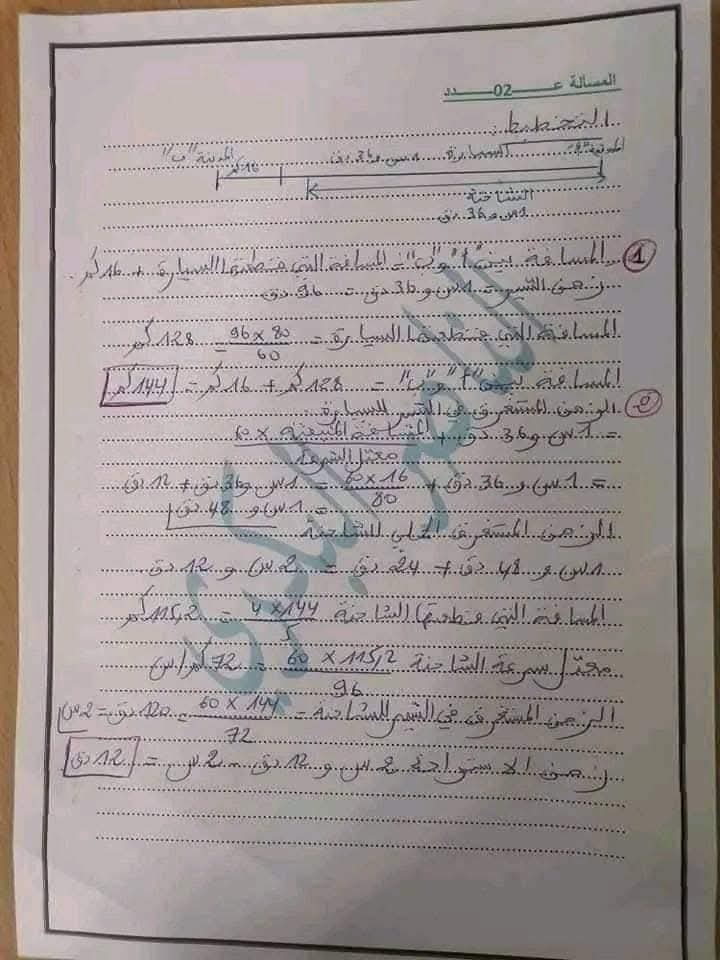 المسألة عـــــ02ــــدد
التخطيط:
المدينة "أ" السيارة 1س و 36 دق 16 كم المدينة "ب"
الشاحنة
1س و 36 دق
1 المسافة بين "أ" و "ب" = المسافة التي قطعتها السيارة + 16 كم.
زمن السير = 1س و 36 دق = 96 دق
المسافة التي قطعتها السيارة = 96 × 80 / 60 = 128 كم
المسافة بين "أ" و "ب" = 128 كم + 16 كم = 144 كم
2 الزمن المستغرق في السير للسيارة
= 1س و 36 دق + المسافة المتبقية × 60 / معدل السرعة
= 1س و 36 دق + 60 × 16 / 80 = 1س و 36 دق + 12 دق
= 1س و 48 دق
الزمن المستغرق الجملي للشاحنة
1س و 48 دق + 24 دق = 2س و 12 دق
المسافة التي قطعتها الشاحنة 4 × 144 / 5 = 115,2 كم
معدل سرعة الشاحنة 60 × 115,2 / 96 = 72 كم/س
الزمن المستغرق في السير للشاحنة = 60 × 144 / 72 = 120 دق = 2س
زمن الاستراحة 2س و 12 دق - 2س = 12 دق